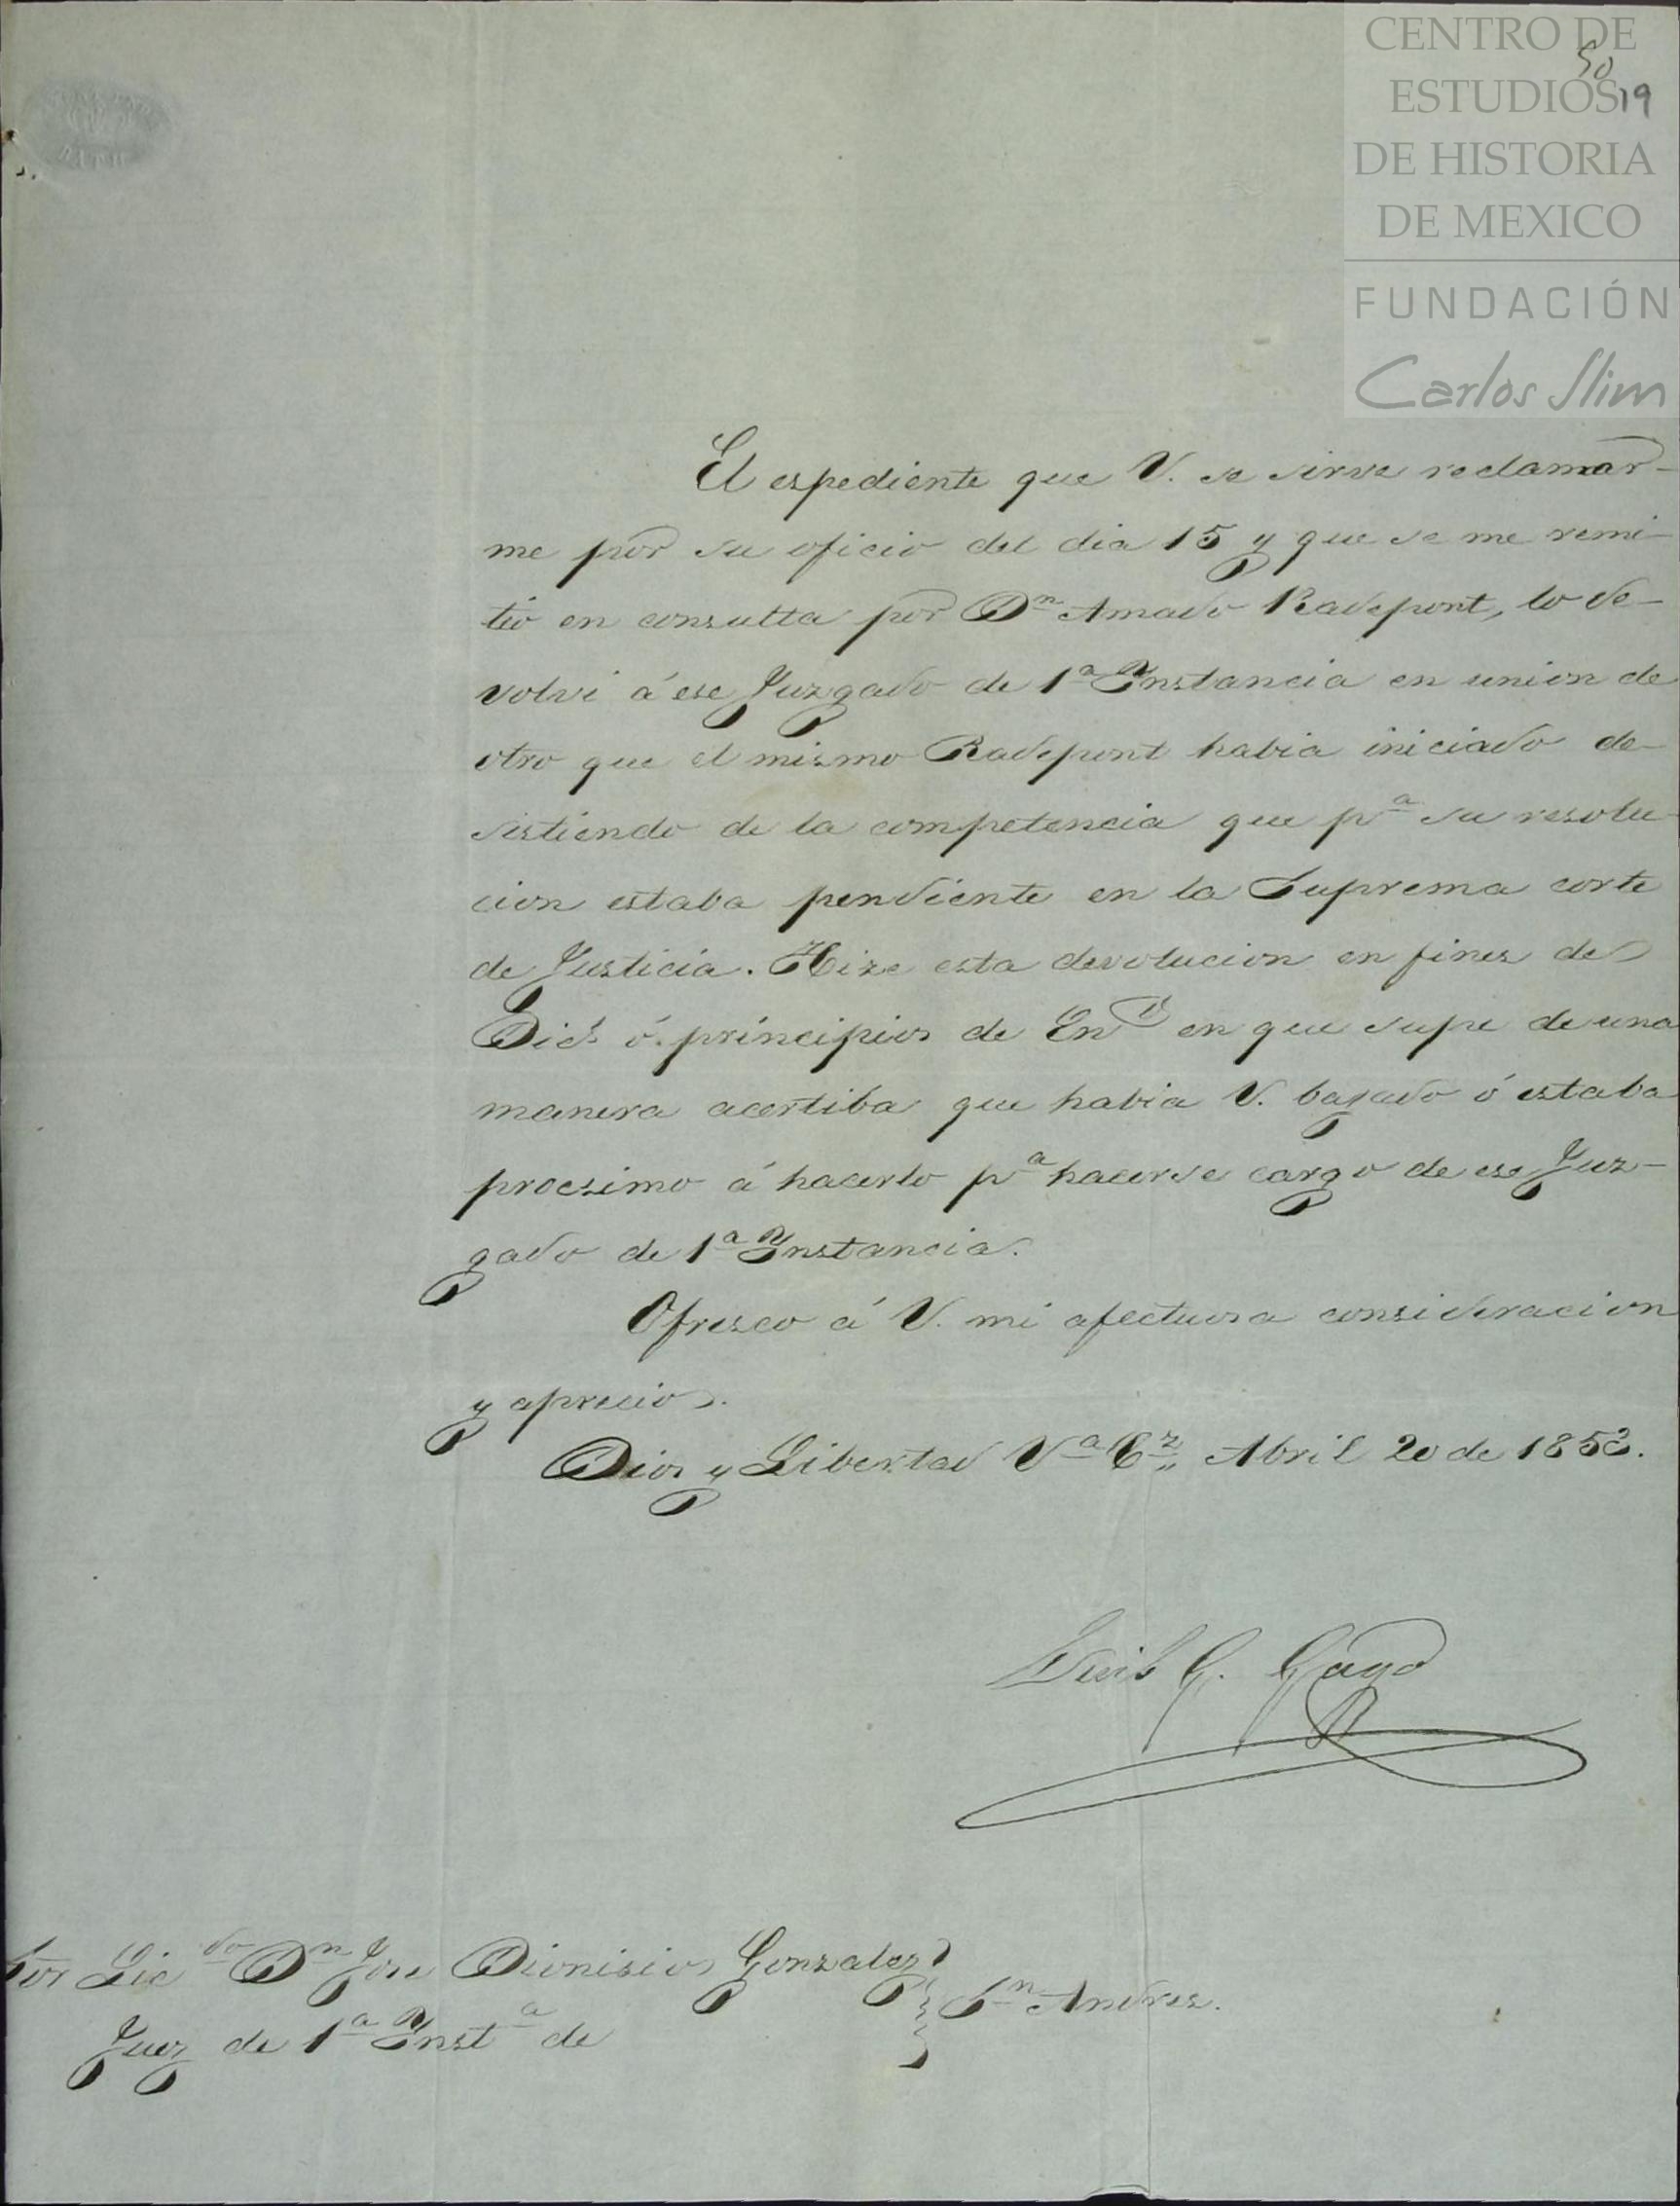 CENTRO DE
50
ESTUDIOS
19
DE HISTORIA
DE MEXICO
FUNDACIÓN
Carlos Slim
El espediente que V. se sirve reclamar-
me por su oficio del dia 15 y que se me remi-
tió en consulta por Dn Amado Radepont, lo de-
volvi á ese Juzgado de 1a Instancia en union de
otro que el mismo Radepont habia iniciado de-
sistiendo de la competencia que pa su resolu-
cion estaba pendiente en la Suprema corte
de Justicia. Hize esta devolucion en fines de
Dice ó principios de Eno en que supe de una
manera acertiba que habia V. bajado ó estaba
procsimo á hacerlo pa hacerse cargo de ese Juz-
gado de 1a Instancia.
Ofresco á V. mi afectuosa consideracion
y aprecio.
Dios y Libertad Va Cz Abril 20 de 1852.
Luis G. Gago
Sor Licdo Dn Jose Dionisio Gonzalez
Juez de 1a Insta de
Sn Andres.